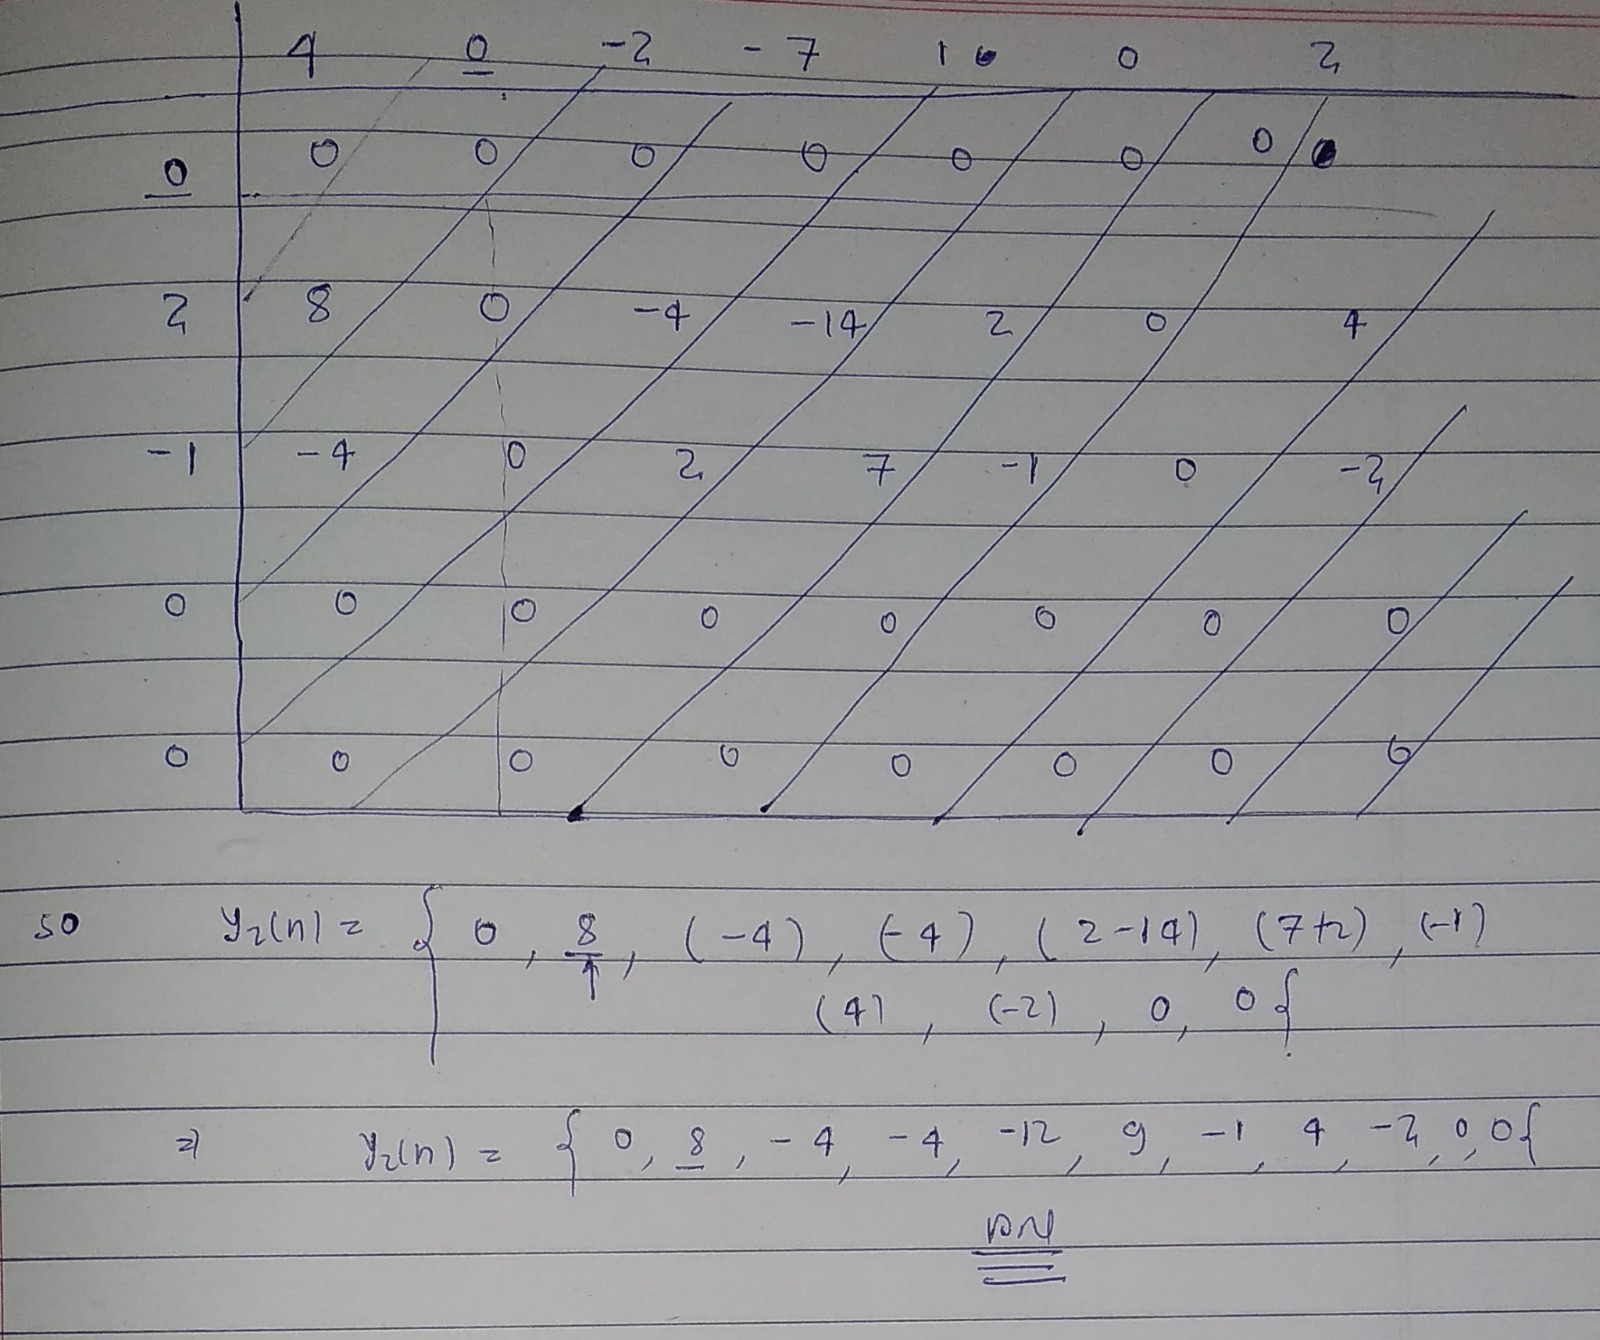 4 0 -2 -7 1 0 2
0 0 0 0 0 0 0 0
2 8 0 -4 -14 2 0 4
-1 -4 0 2 7 -1 0 -2
0 0 0 0 0 0 0 0
0 0 0 0 0 0 0 0
so y₂(n) = { 0, 8, (-4), (-4), (2-14), (7+2), (-1)
↑
(4), (-2), 0, 0 {
⇒ y₂(n) = { 0, 8, -4, -4, -12, 9, -1, 4, -2, 0, 0 {